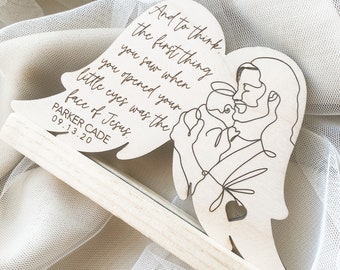 And to think
the first thing
you saw when
you opened your
little eyes was the
face of Jesus
PARKER CADE
09.13.20